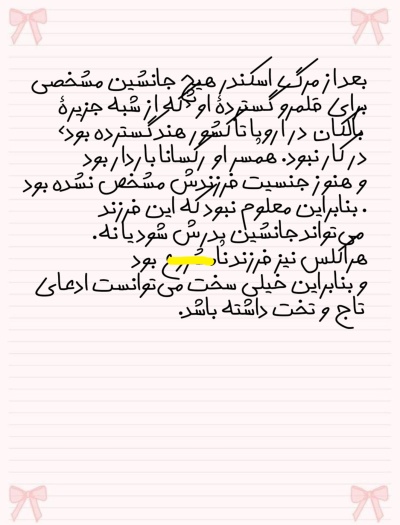 بعد از مرگ اسکندر هیچ جانشین مشخصی
برای قلمرو گستردهٔ او که از شبه جزیرهٔ
بالکان در اروپا تا کشور هند گسترده بود،
در کار نبود. همسر او رکسانا باردار بود
و هنوز جنسیت فرزندش مشخص نشده بود
. بنابراین معلوم نبود که این فرزند
می‌تواند جانشین پدرش شود یا نه.
هراکلس نیز فرزند بود
و بنابراین خیلی سخت می‌توانست ادعای
تاج و تخت داشته باشد.